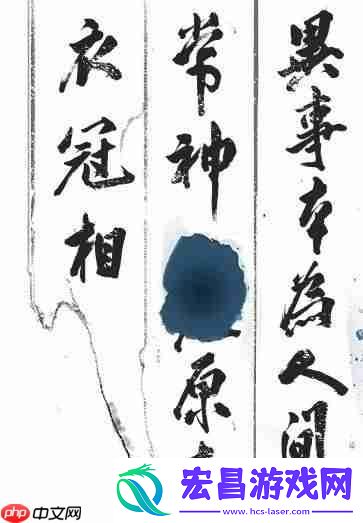 異事本為人間
常神原
衣冠相
php中文网
宏昌游戏网
www.hcs-laser.com